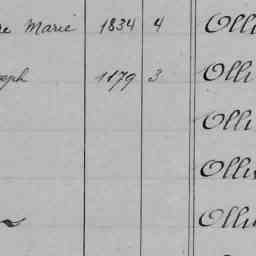 re Marie 1834 4 Olli
seph 1179 3 Olli
Olli
Olliv
Olliv